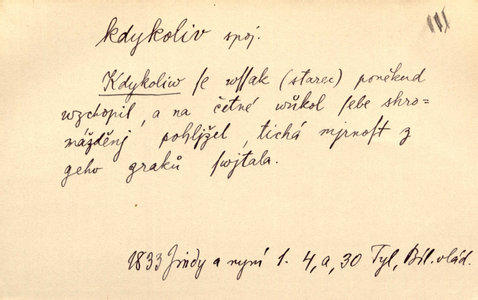 kdykoliv spoj.
Kdykoliw ſe wſſak (starec) poněkud
wzchopil, a na četné wůkol ſebe shro-
mážděnj pohljžel, tichá mjrnoſt z
geho zraků ſwjtala.
1833 Jindy a nyní 1. 4, a, 30 Tyl, Bíl. vlád.